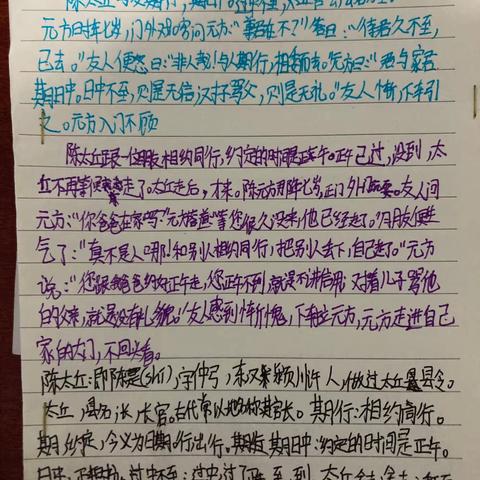 陈太丘与友期行，期日中。过中不至，太丘舍去，去后乃至。
元方时年七岁，门外戏。客问元方：“尊君在不？”答曰：“待君久不至，
已去。”友人便怒曰：“非人哉！与人期行，相委而去。”元方曰：“君与家君
期日中。日中不至，则是无信；对子骂父，则是无礼。”友人惭，下车引
之。元方入门不顾
陈太丘跟一位朋友相约同行，约定的时间是正午。正午已过，没到，太
丘不再等候就走了。太丘走后，才来。陈元方那年七岁，正门外玩耍。友人问
元方：“你爸爸在家吗？”元方答道“等您很久没来，他已经走了。”朋友便生
气了：“真不是人啊！和别人相约同行，把别人丢下，自己走了。”元方
说：“您跟我爸爸约好正午走，您正午不到，就是不讲信用 又对着儿子骂他
的父亲，就是没有礼貌。”友人感到惭愧，下车拉元方，元方走进自己
家的大门，不回头看。
陈太丘：即陈寔(shí)，字仲弓，东汉颍川许人，做过太丘县县令。
太丘，县名；长，长官。古代常以地名称其官长。期行：相约同行。
期，约定，今义为日期；行，出行。期日中：约定的时间是正午。
日中，正午时分。过中不至：过中，过了正午。至，到 太丘舍去：去，